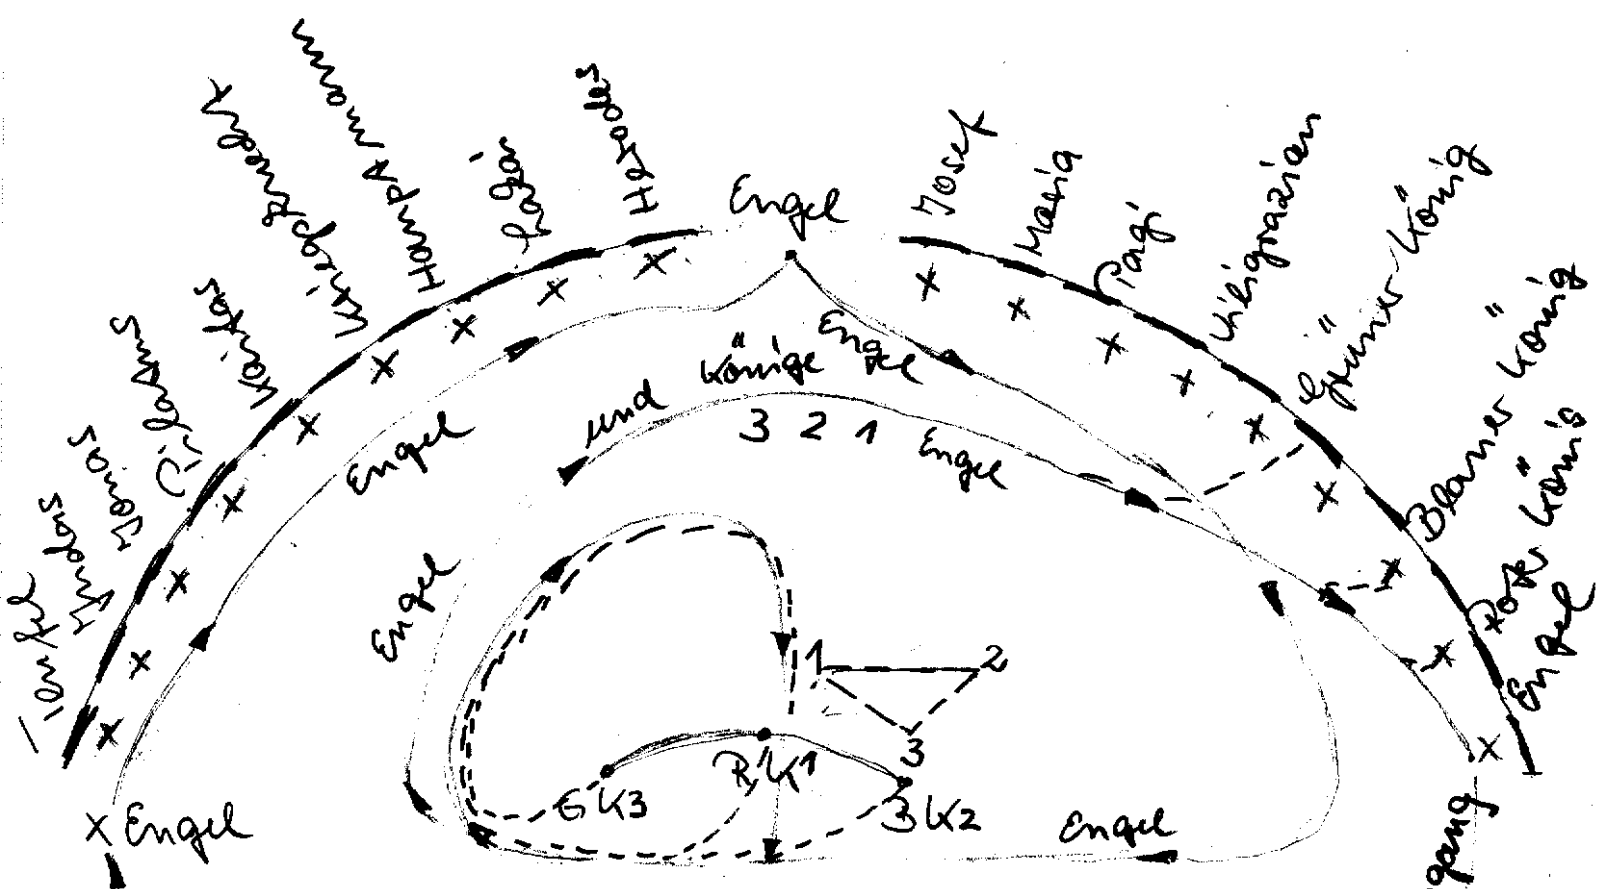 Teufel
Judas
Jonas
Pilatus
Kaifas
Kriegsknecht
Hauptmann
Lakai
Herodes
Engel
Josef
Maria
Pagi
Viligrazian
Grüner König
Blauer König
Roter König
Engel
Engel
Engel
und Könige
3 2 1
Engel
Engel
1 2
3
G K3
R K1
B K2
Engel
Engel
gang